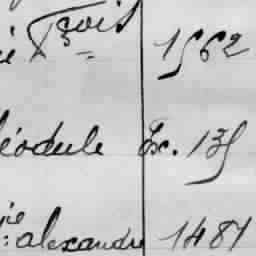 ie Fçois 1562
éodule Ex. 135
ie alexandre 1481